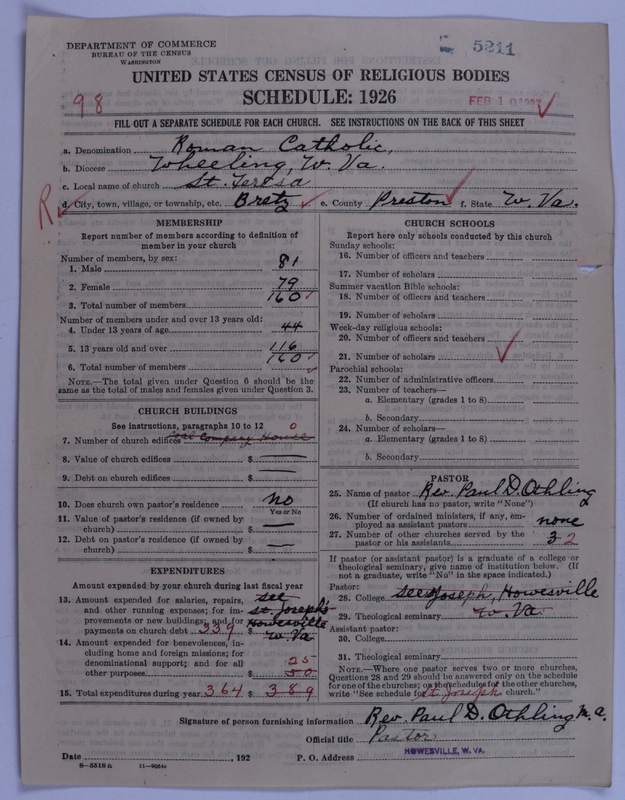 DEPARTMENT OF COMMERCE
BUREAU OF THE CENSUS
WASHINGTON
5211
UNITED STATES CENSUS OF RELIGIOUS BODIES
SCHEDULE: 1926
98
FILL OUT A SEPARATE SCHEDULE FOR EACH CHURCH. SEE INSTRUCTIONS ON THE BACK OF THIS SHEET
a. Denomination Roman Catholic,
b. Diocese Wheeling, W. Va.
c. Local name of church St. Teresa
R
d. City, town, village, or township, etc. Bretz e. County Preston f. State W. Va.
MEMBERSHIP
Report number of members according to definition of
member in your church
Number of members, by sex:
1. Male 81
2. Female 79
3. Total number of members 160
Number of members under and over 13 years old:
4. Under 13 years of age 44
5. 13 years old and over 116
6. Total number of members 160
NOTE.—The total given under Question 6 should be the
same as the total of males and females given under Question 3.
CHURCH BUILDINGS
See instructions, paragraphs 10 to 12 0
7. Number of church edifices Coal Company House
8. Value of church edifices $ —
9. Debt on church edifices $ —
10. Does church own pastor's residence No
Yes or No
11. Value of pastor's residence (if owned by
church) $ —
12. Debt on pastor's residence (if owned by
church) $ —
EXPENDITURES
Amount expended by your church during last fiscal year
13. Amount expended for salaries, repairs, see
and other running expenses; for im- St. Josephs
provements or new buildings; and for Howesville
payments on church debt 339 W. Va.
14. Amount expended for benevolences, in-
cluding home and foreign missions; for
denominational support; and for all 25
other purposes 50
15. Total expenditures during year 364 $ 389
CHURCH SCHOOLS
Report here only schools conducted by this church
Sunday schools:
16. Number of officers and teachers
17. Number of scholars
Summer vacation Bible schools:
18. Number of officers and teachers
19. Number of scholars
Week-day religious schools:
20. Number of officers and teachers
21. Number of scholars
Parochial schools:
22. Number of administrative officers
23. Number of teachers—
a. Elementary (grades 1 to 8)
b. Secondary
24. Number of scholars—
a. Elementary (grades 1 to 8)
b. Secondary
PASTOR
25. Name of pastor Rev. Paul D. Othling
(If church has no pastor, write "None")
26. Number of ordained ministers, if any, em-
ployed as assistant pastors none
27. Number of other churches served by the
pastor or his assistants 3 2
If pastor (or assistant pastor) is a graduate of a college or
theological seminary, give name of institution below. (If
not a graduate, write "No" in the space indicated.)
Pastor:
28. College see St Joseph, Howesville
29. Theological seminary W. Va.
Assistant pastor:
30. College
31. Theological seminary
NOTE.—Where one pastor serves two or more churches,
Questions 28 and 29 should be answered only on the schedule
for one of the churches; on the schedules for the other churches,
write "See schedule for St Joseph church."
Signature of person furnishing information Rev. Paul D. Othling M. A.
Official title Pastor
Date , 192 P. O. Address HOWESVILLE, W. VA.